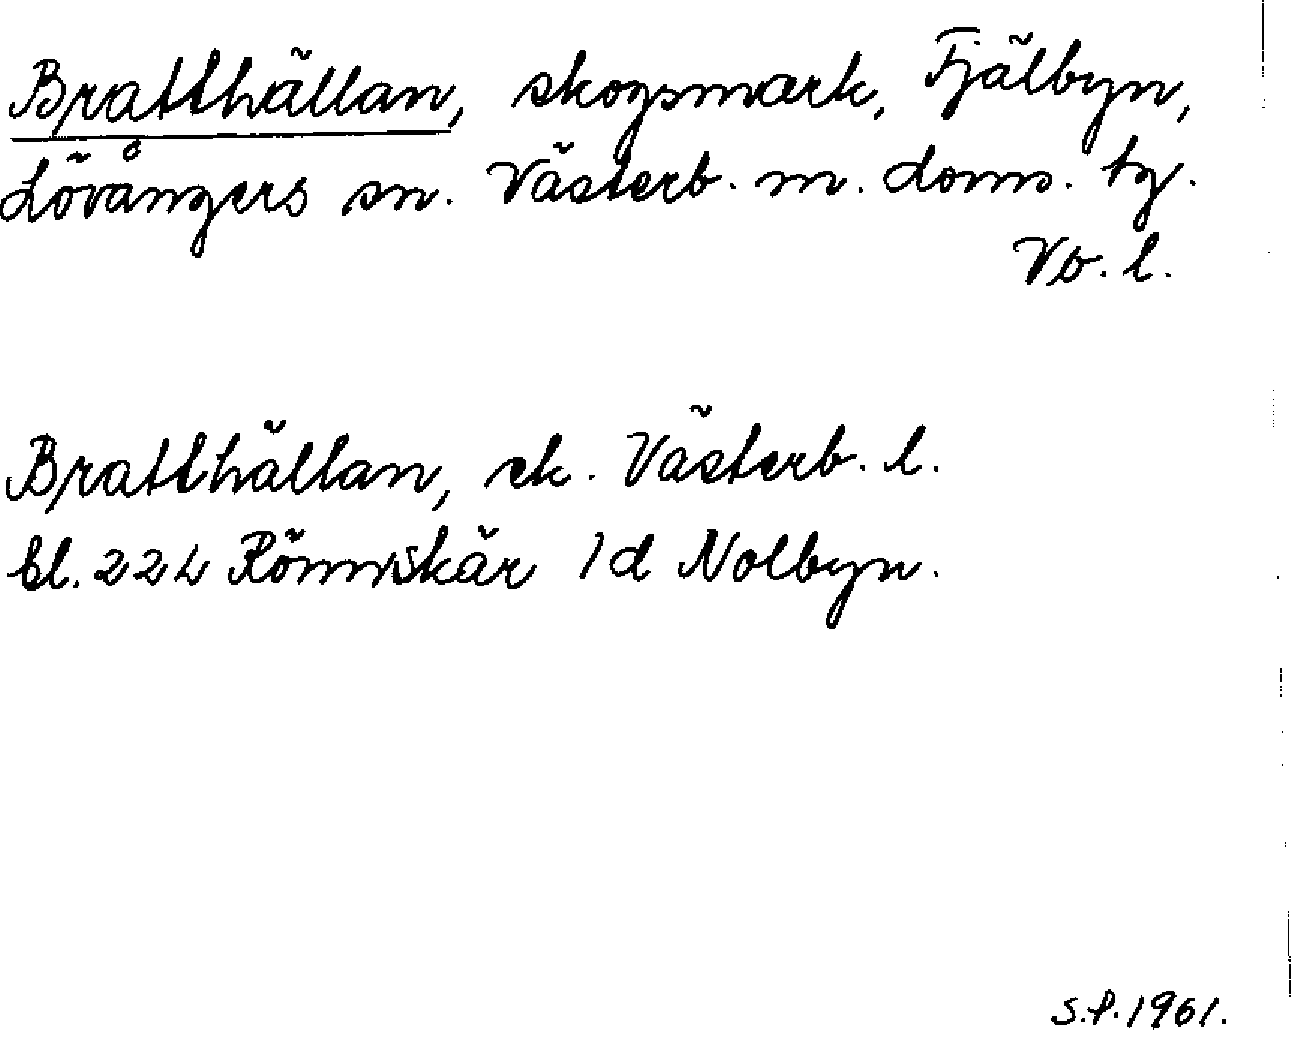 Bratthällan, skogsmark, Fjälbyn,
Lövångers sn. Västerb. m. doms. tg.
Vb. l.
Bratthällan, ek. Västerb. l.
bl. 22L Rönnskär 1d Nolbyn.
S.P. 1961.